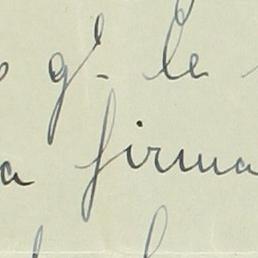 gl- le
a firma